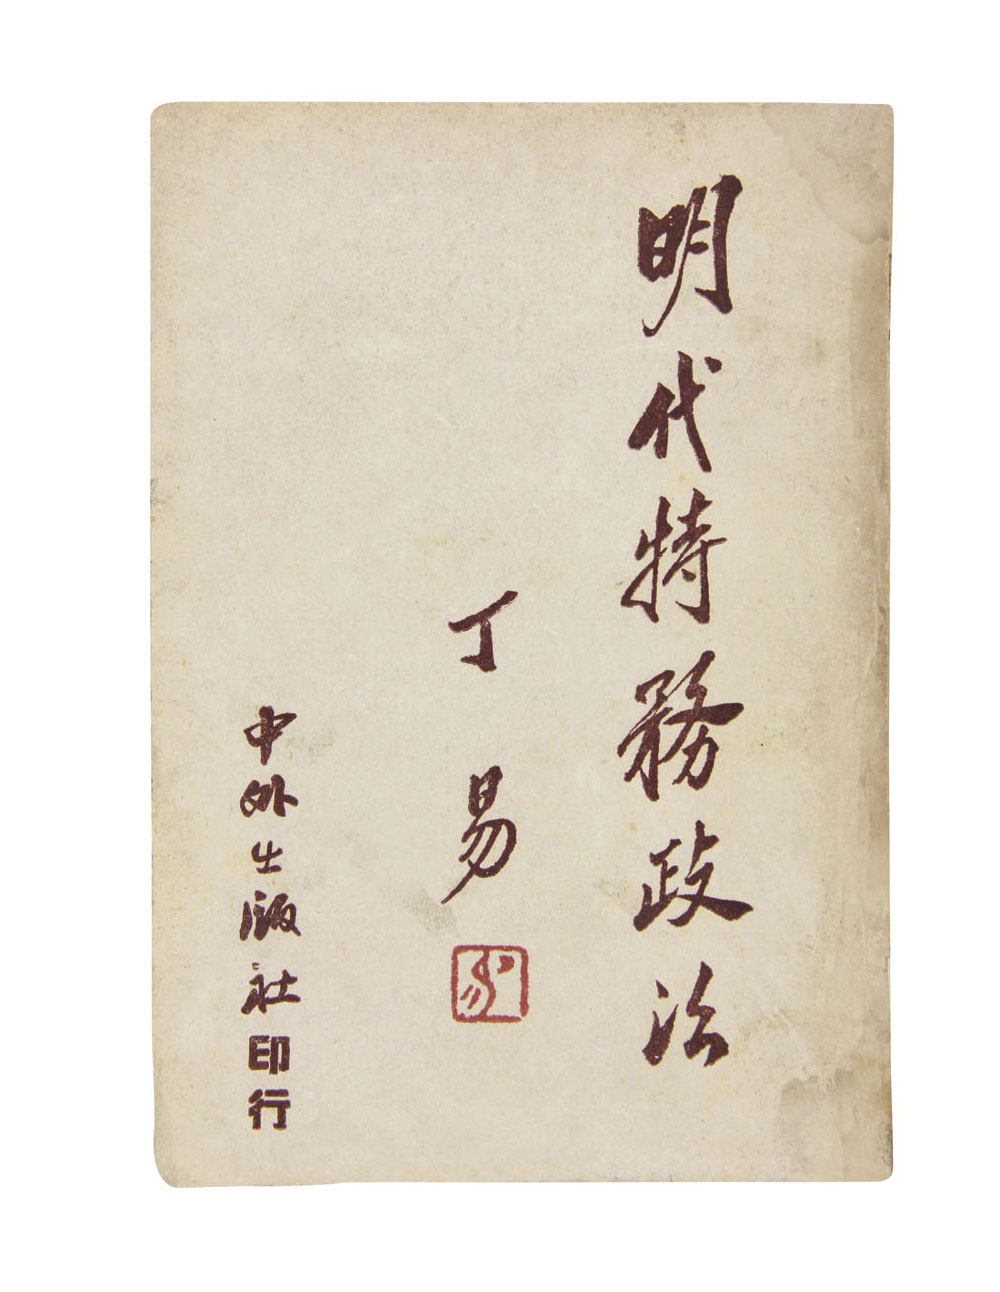 明代特務政治
丁易
中外出版社印行